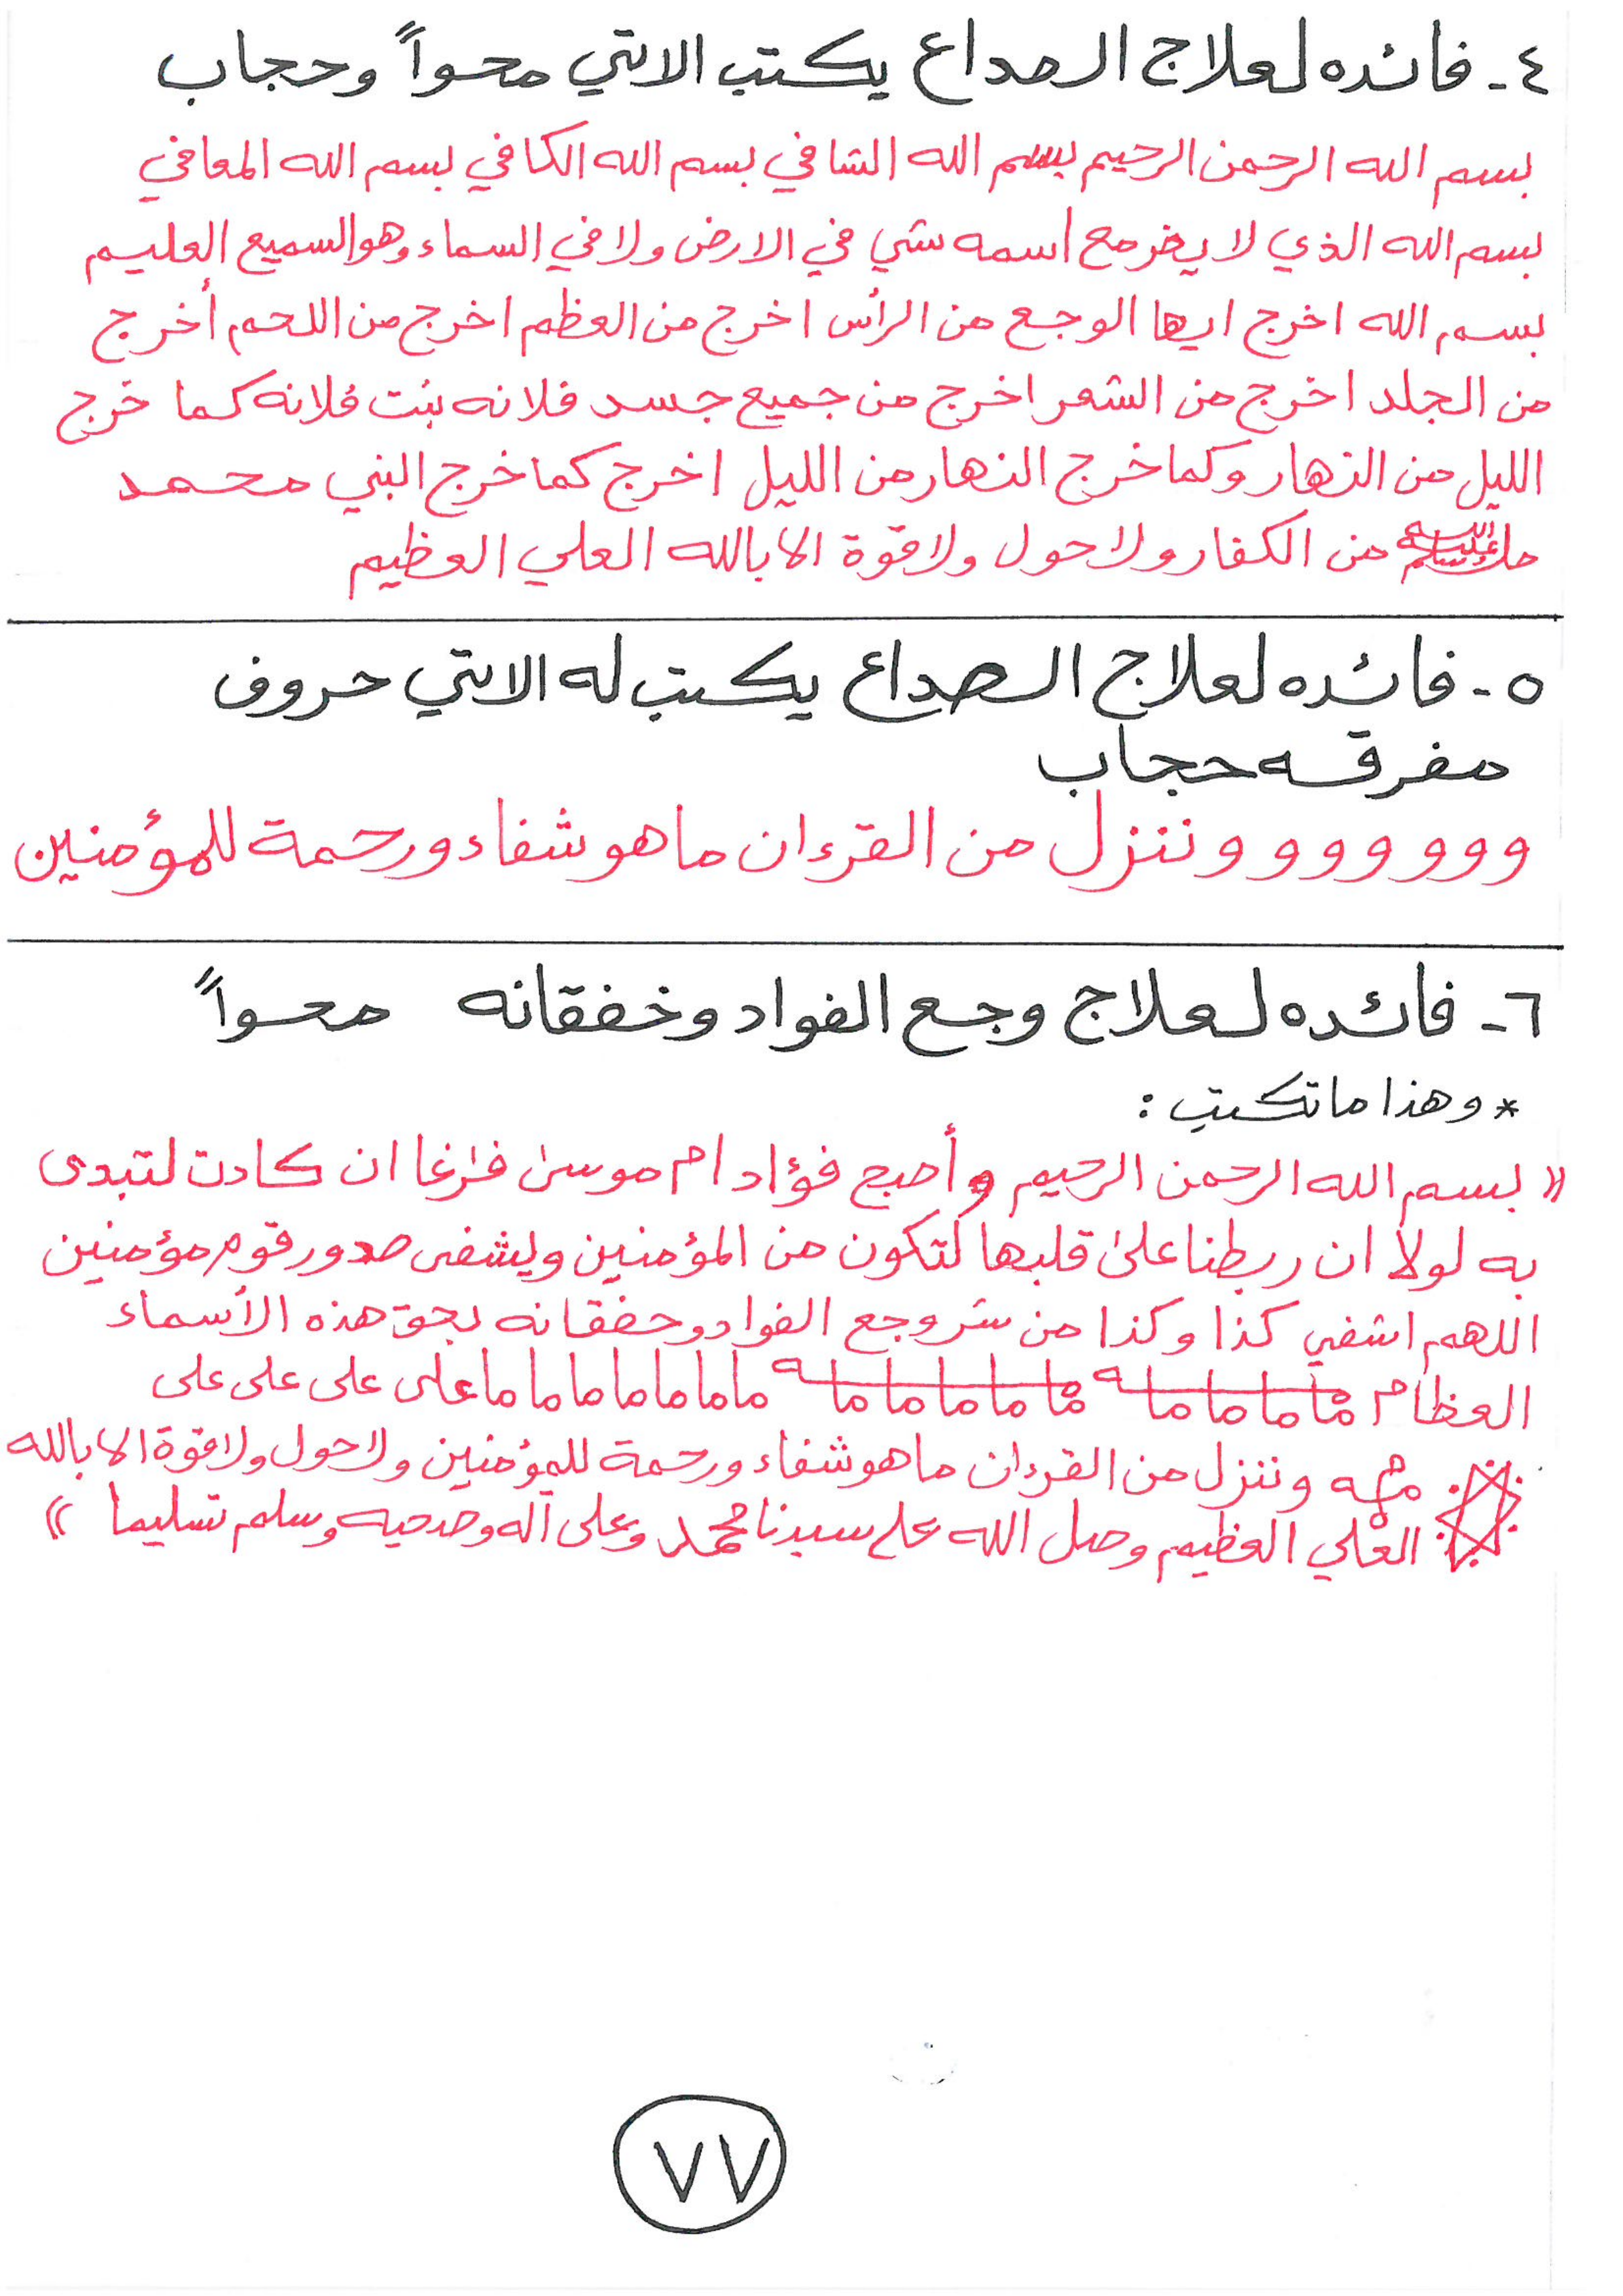 ٤ - فائده لعلاج الصداع يكتب الاتي محواً وحجاب
بسم الله الرحمن الرحيم بسم الله الشافي بسم الله الكافي بسم الله المعافي
بسم الله الذي لا يضر مع اسمه شي في الارض ولا في السماء وهو السميع العليم
بسم الله اخرج ايها الوجع من الرأس اخرج من العظم اخرج من اللحم أخرج
من الجلد اخرج من الشعر اخرج من جميع جسد فلانه بنت فلانه كما خرج
الليل من النهار وكما خرج النهار من الليل اخرج كما خرج النبي محمد
صلى الله عليه وسلم من الكفار ولا حول ولا قوة الا بالله العلي العظيم
٥ - فائده لعلاج الصداع يكتب له الاتي حروف
مفرقه حجاب
و و و و و و و وننزل من القرءان ما هو شفاء ورحمة للمؤمنين
٦ - فائده لعلاج وجع الفواد وخفقانه محواً
* وهذا ما تكتب :
« بسم الله الرحمن الرحيم وأصبح فؤاد ام موسىٰ فٰرغا ان كادت لتبدى
به لولا ان ربطنا علىٰ قلبها لتكون من المؤمنين ويشفى صدور قوم مؤمنين
اللهم اشفي كذا وكذا من شر وجع الفواد وخفقانه بحق هذه الأسماء
العظام ما ما ما ما مه ما ما ما ما ما ما مه ما ما ما ما ما ما ما على على على على
مهمه وننزل من القرءان ما هو شفاء ورحمة للمؤمنين ولا حول ولا قوة الا بالله
العلي العظيم وصل الله على سيدنا محمد وعلى آله وصحبه وسلم تسليما »
٧٧